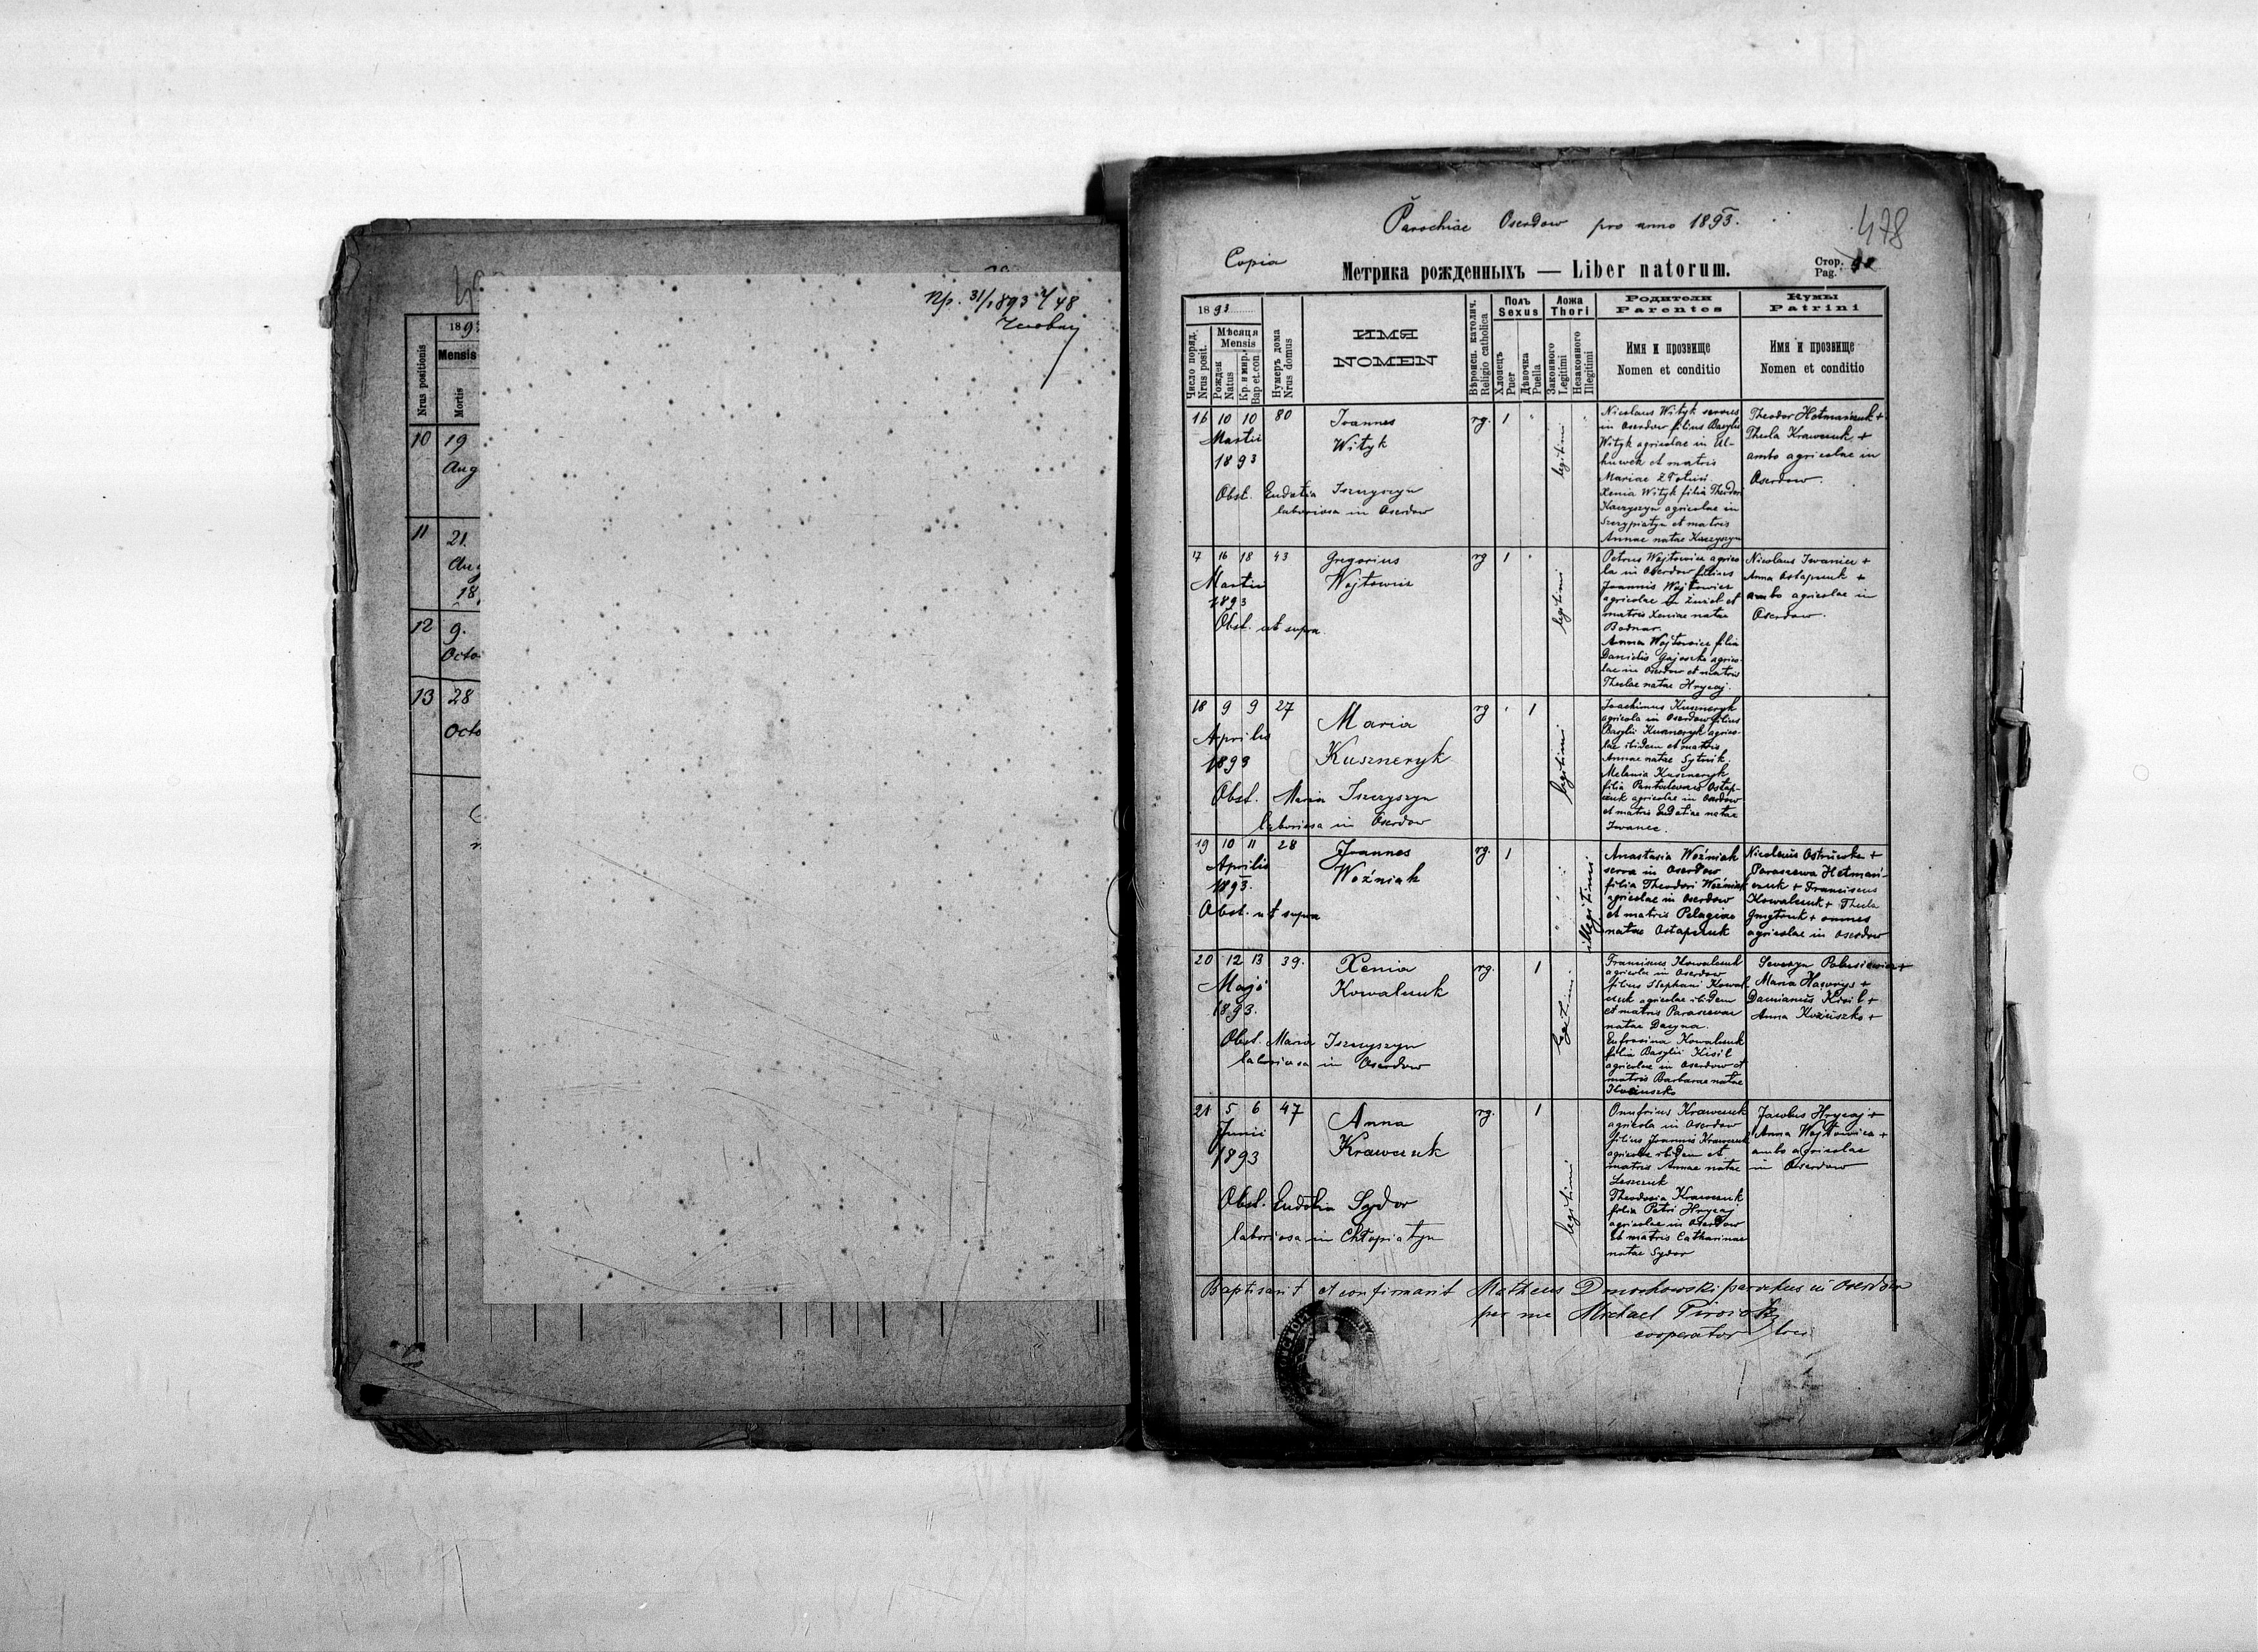 Пр. 31/1893 48
189
Mensis
Nrus positionis
Mortis
10 19
Aug
11 21.
Aug
18
12 9.
Octo
13 28
Octo
Parochiae Oserdow pro anno 1893.
478
Copia
Метрика рожденныхъ — Liber natorum.
Стор.
Pag.
1893
Число поряд.
Nrus posit.
Мѣсяця
Mensis
Рожден
Natus
Кр. и мир.
Bap et.con
Нумеръ дома
Nrus domus
ИМЯ
NOMEN
Вѣроисп. католич.
Religio catholica
Полъ
Sexus
Хлопецъ
Puer
Дѣвочка
Puella
Ложа
Thori
Законного
Legitimi
Незаконного
Illegitimi
Родители
Parentes
Имя и прозвище
Nomen et conditio
Кумы
Patrini
Имя и прозвище
Nomen et conditio
16 10 10 80
Martii
1893
Joannes
Wityk
Obst. Eudotia Iszczyszyn
laboriosa in Oserdow
rg. 1
legitimi
Nicolaus Wityk servus
in Oserdow filius Basylii
Wityk agricolae in Ul-
huwek et matris
Mariae
Xenia Wityk filia Theodori
Kaczyszyn agricolae in
Szczypiatyn et matris
Annae natae Kaczyszyn
Theodor Hetmańczuk +
Thecla Krawczuk +
ambo agricolae in
Oserdow.
17 16 18 43
Martii
1893
Gregorius
Wojtowicz
Obst. ut supra
rg 1
legitimi
Petrus Wojtowicz agrico-
la in Oserdow filius
Joannis Wojtowicz
agricolae in Żniat. et
matris Xeniae natae
Bodnar.
Anna Wojtowicz filia
Danielis Gajoszko agrico-
lae in Oserdow et matris
Theclae natae Hrycaj.
Nicolaus Iwaniec +
Anna Ostapczuk +
ambo agricolae in
Oserdow.
18 9 9 27
Aprilis
1893
Maria
Kuszneryk
Obst. Maria Iszczyszyn
laboriosa in Oserdow
rg 1
legitimi
Joachimus Kuszneryk
agricola in Oserdow filius
Basylii Kuszneryk agrico-
lae ibidem et matris
Annae natae Sytnik.
Melania Kuszneryk
filia Pantalemonis Ostap-
czuk agricolae in Oserdow
et matris Eudotiae natae
Iwanec.
19 10 11 28
Aprilis
1893.
Joannes
Woźniak
Obst. ut supra
rg. 1
illegitimi
Anastasia Woźniak
serva in Oserdow
filia Theodori Woźniak
agricolae in Oserdow
et matris Pelagiae
natae Ostapczuk
Nicolaus Ostruszka +
Paraszewa Hetmań-
czuk + Franciscus
Kowalczuk + Thecla
Gmytruk + omnes
agricolae in Oserdow
20 12 13 39.
Maji
1893.
Xenia
Kowalczuk
Obst. Maria Iszczyszyn
laboriosa in Oserdow
rg. 1
legitimi
Franciscus Kowalczuk
agricola in Oserdow
filius Stephani Kowal
czuk agricolae ibidem
et matris Parascevae
natae Dacyna.
Eufrosina Kowalczuk
filia Basylii Kisil
agricolae in Oserdow et
matris Barbarae natae
Seweryn +
Maria Hawrys +
Damianus Kisil +
Anna Kożuszko +
21 5 6 47
Junii
1893
Anna
Krawczuk
Obst. Eudokia Sydor
laboriosa in Chłopiatyn
rg. 1
legitimi
Onufrius Krawczuk
agricola in Oserdow
filius Joannis Krawczuk
agricolae ibidem et
matris Annae natae
Leszczuk
Theodosia Krawczuk
filia Petri Hrycaj
agricolae in Oserdow
et matris Catharinae
natae Sydor
Jacobus Hrycaj +
Anna Wojtowicz +
ambo agricolae
in Oserdow
Baptisavit et confirmavit Matheus Dmochowski parochus in Oserdow
per me Michael
cooperator loci